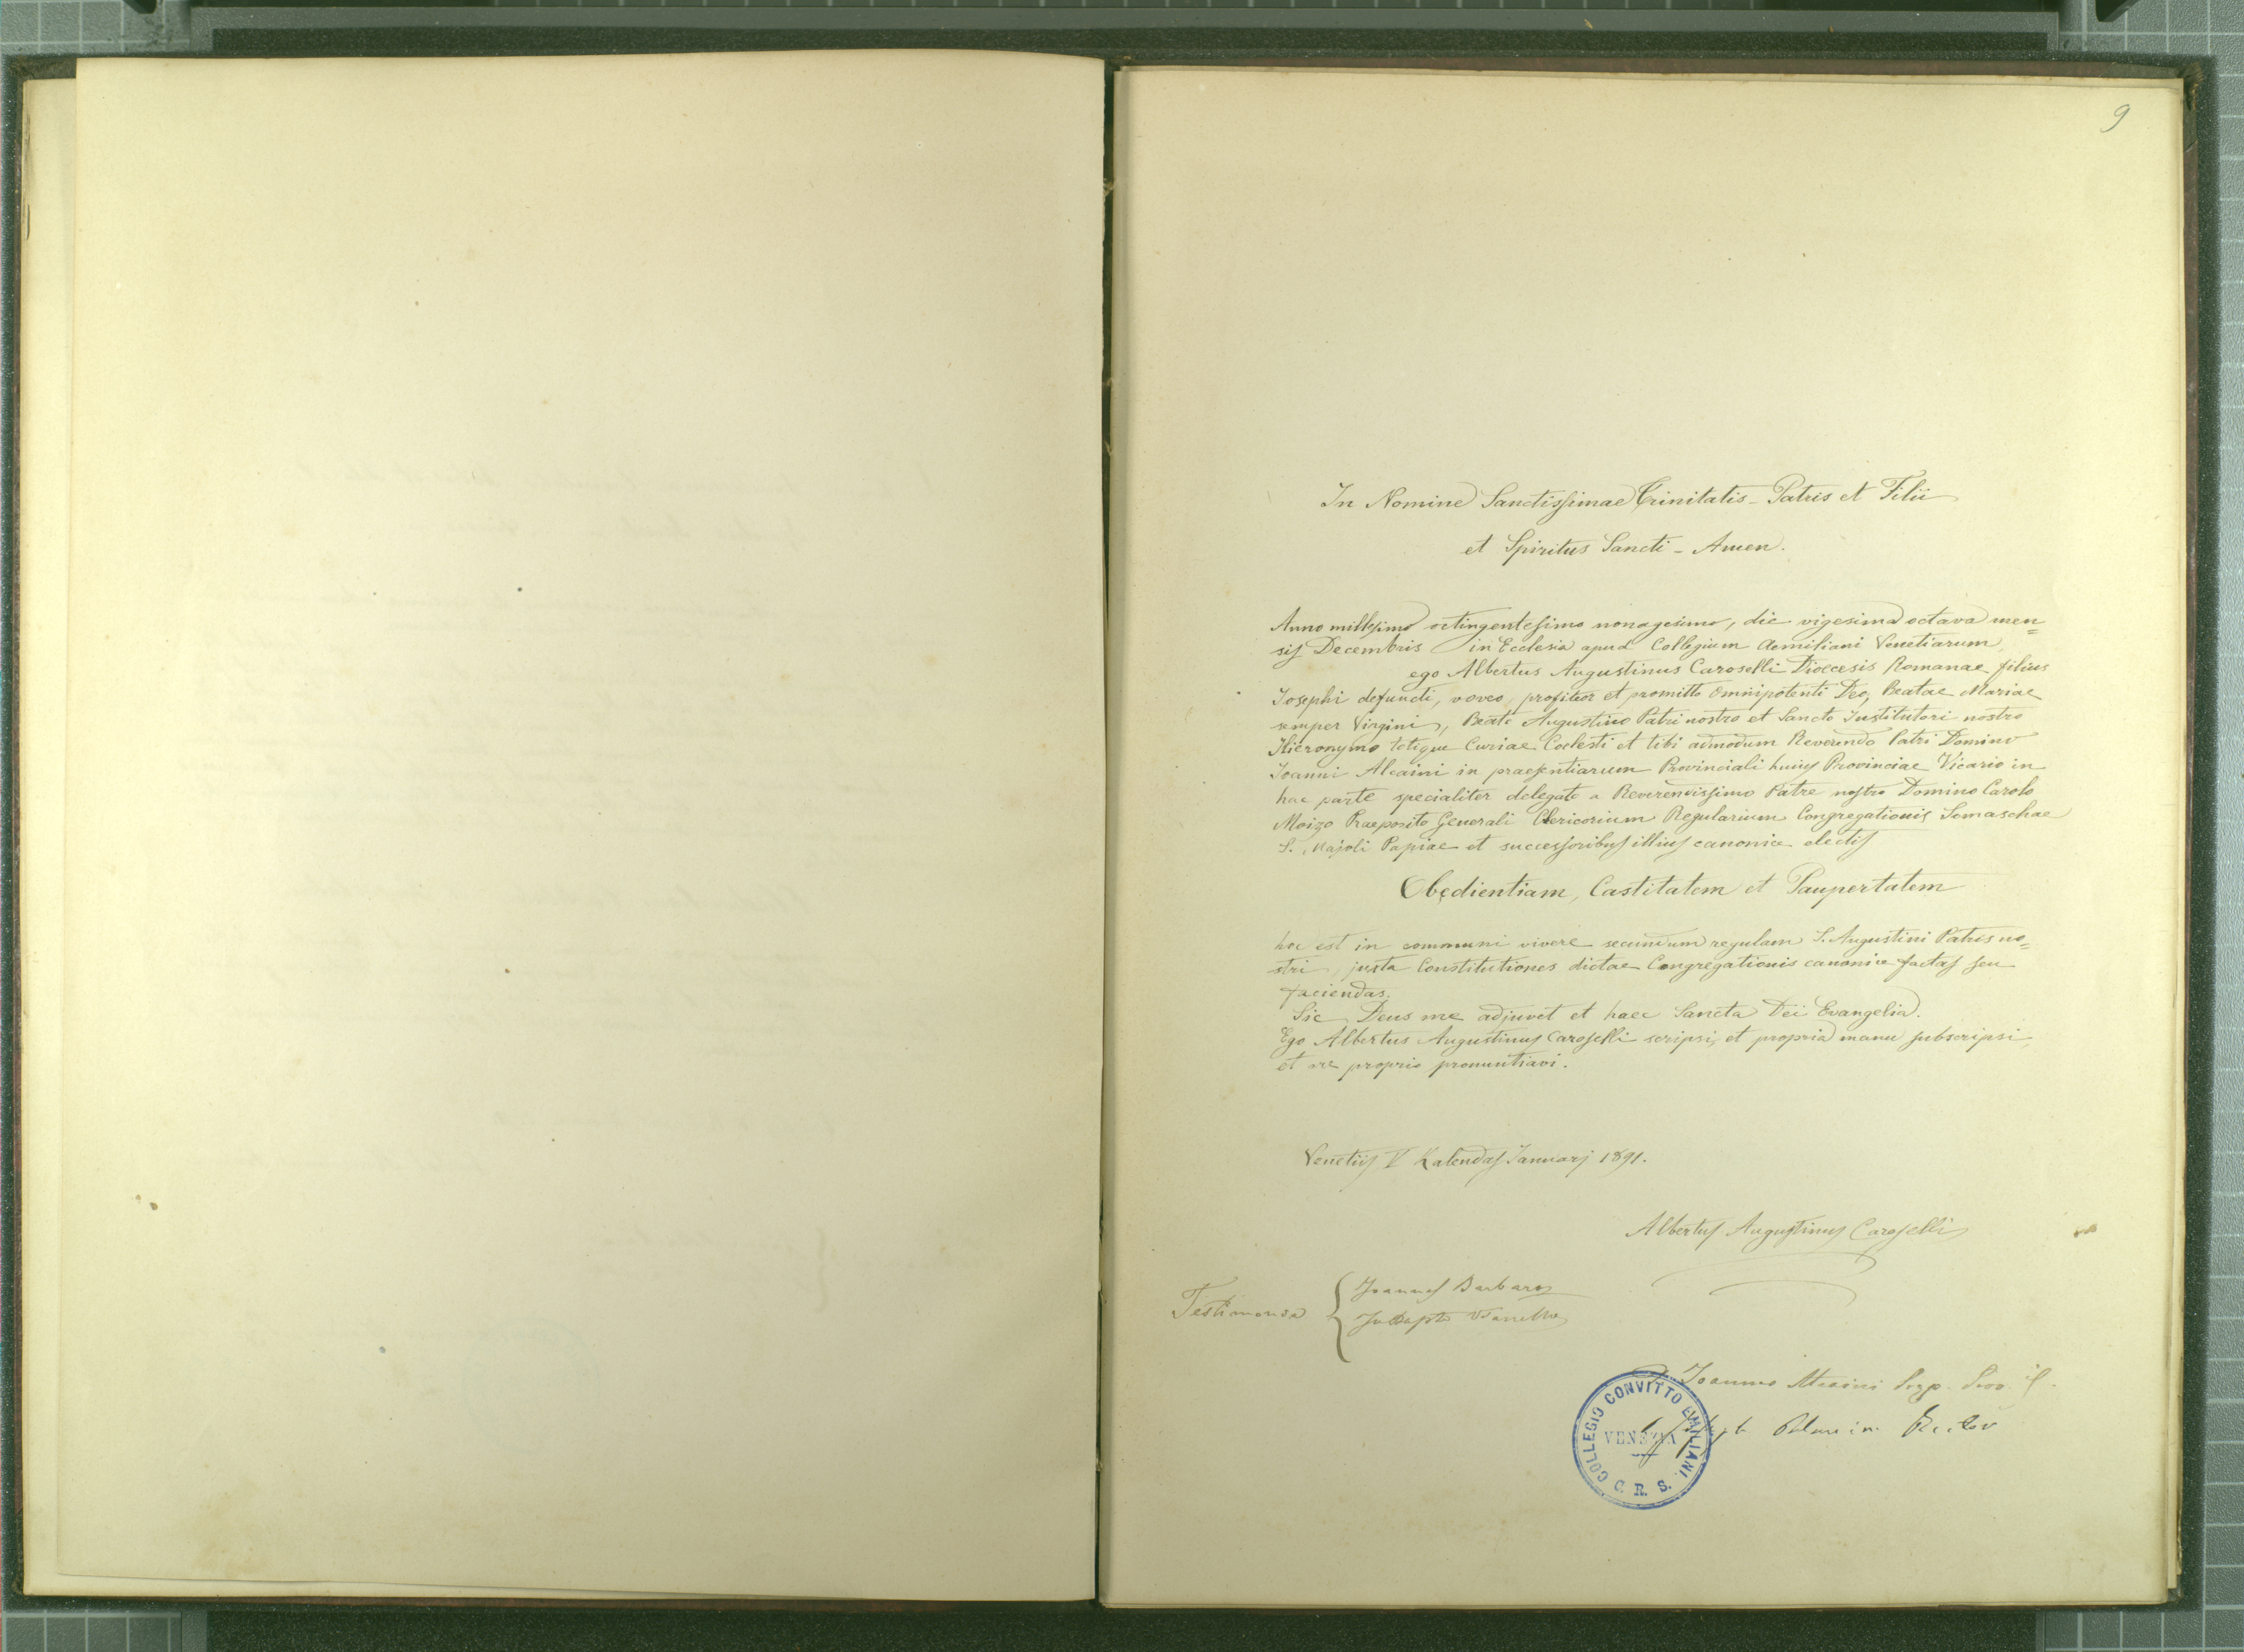 9
In Nomine Sanctissimae Trinitatis - Patris et Filii
et Spiritus Sancti - Amen.
Anno millesimo octingentesimo nonagesimo, die vigesima octava men=
sis Decembris in Ecclesia apud Collegium Aemiliani Venetiarum
ego Albertus Augustinus Caroselli Dioecesis Romanae filius
Josephi defuncti, voveo, profiteor et promitto Omnipotenti Deo, Beatae Mariae
semper Virgini, Beato Augustino Patri nostro et Sancto Institutori nostro
Hieronymo totique Curiae Coelesti et tibi admodum Reverendo Patri Domino
Joanni Alcaini in praesentiarum Provinciali huius Provinciae Vicario in
hac parte specialiter delegato a Reverendissimo Patre nostro Domino Carolo
Moizo Praeposito Generali Clericorium Regularium Congregationis Somaschae
S. Majoli Papiae et successoribus illius canonice electis
Obedientiam, Castitatem et Paupertatem
hoc est in communi vivere secundum regulam S. Augustini Patris no=
stri, juxta Constitutiones dictae Congregationis canonice factas seu
faciendas.
Sic Deus me adjuvet et haec Sancta Dei Evangelia.
Ego Albertus Augustinus Caroselli scripsi, et propria manu subscripsi,
et ore proprio pronuntiavi.
Venetiis V Kalendas Januarj 1891.
Albertus Augustinus Caroselli
Testimonia { Joannes Barbaro
Jo Bapta
Joannes Alcaini Prep. Prov.
Rector
COLLEGIO CONVITTO EMILIANI
VENEZIA
C. R. S.